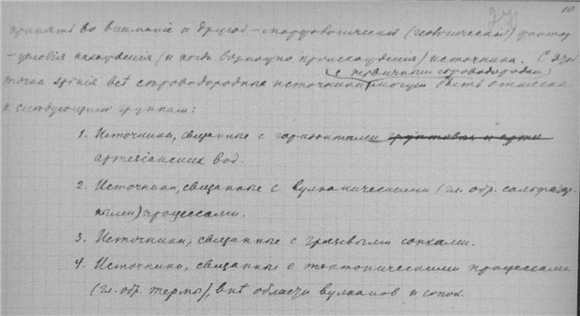 10
принять во вниманіе и другой – морфологическій (геологическій) фактор
– условія нахожденія (и тогда вѣроятно происхожденія) источника. С этой
точки зрѣнія всѣ сѣроводородные источники могут быть отнесены
с терминами сѣроводородом
к слѣдующим группам:
1. Источники, связанные с горизонтами грунтовых и арте
артезіанских вод.
2. Источники, связанные с вулканическими (гл. обр. сольфатар-
ными) процессами.
3. Источники, связанные с грязевыми сопками.
4. Источники, связанные с тектоническими процессами
(гл. обр. термы), внѣ области вулканов и сопок.